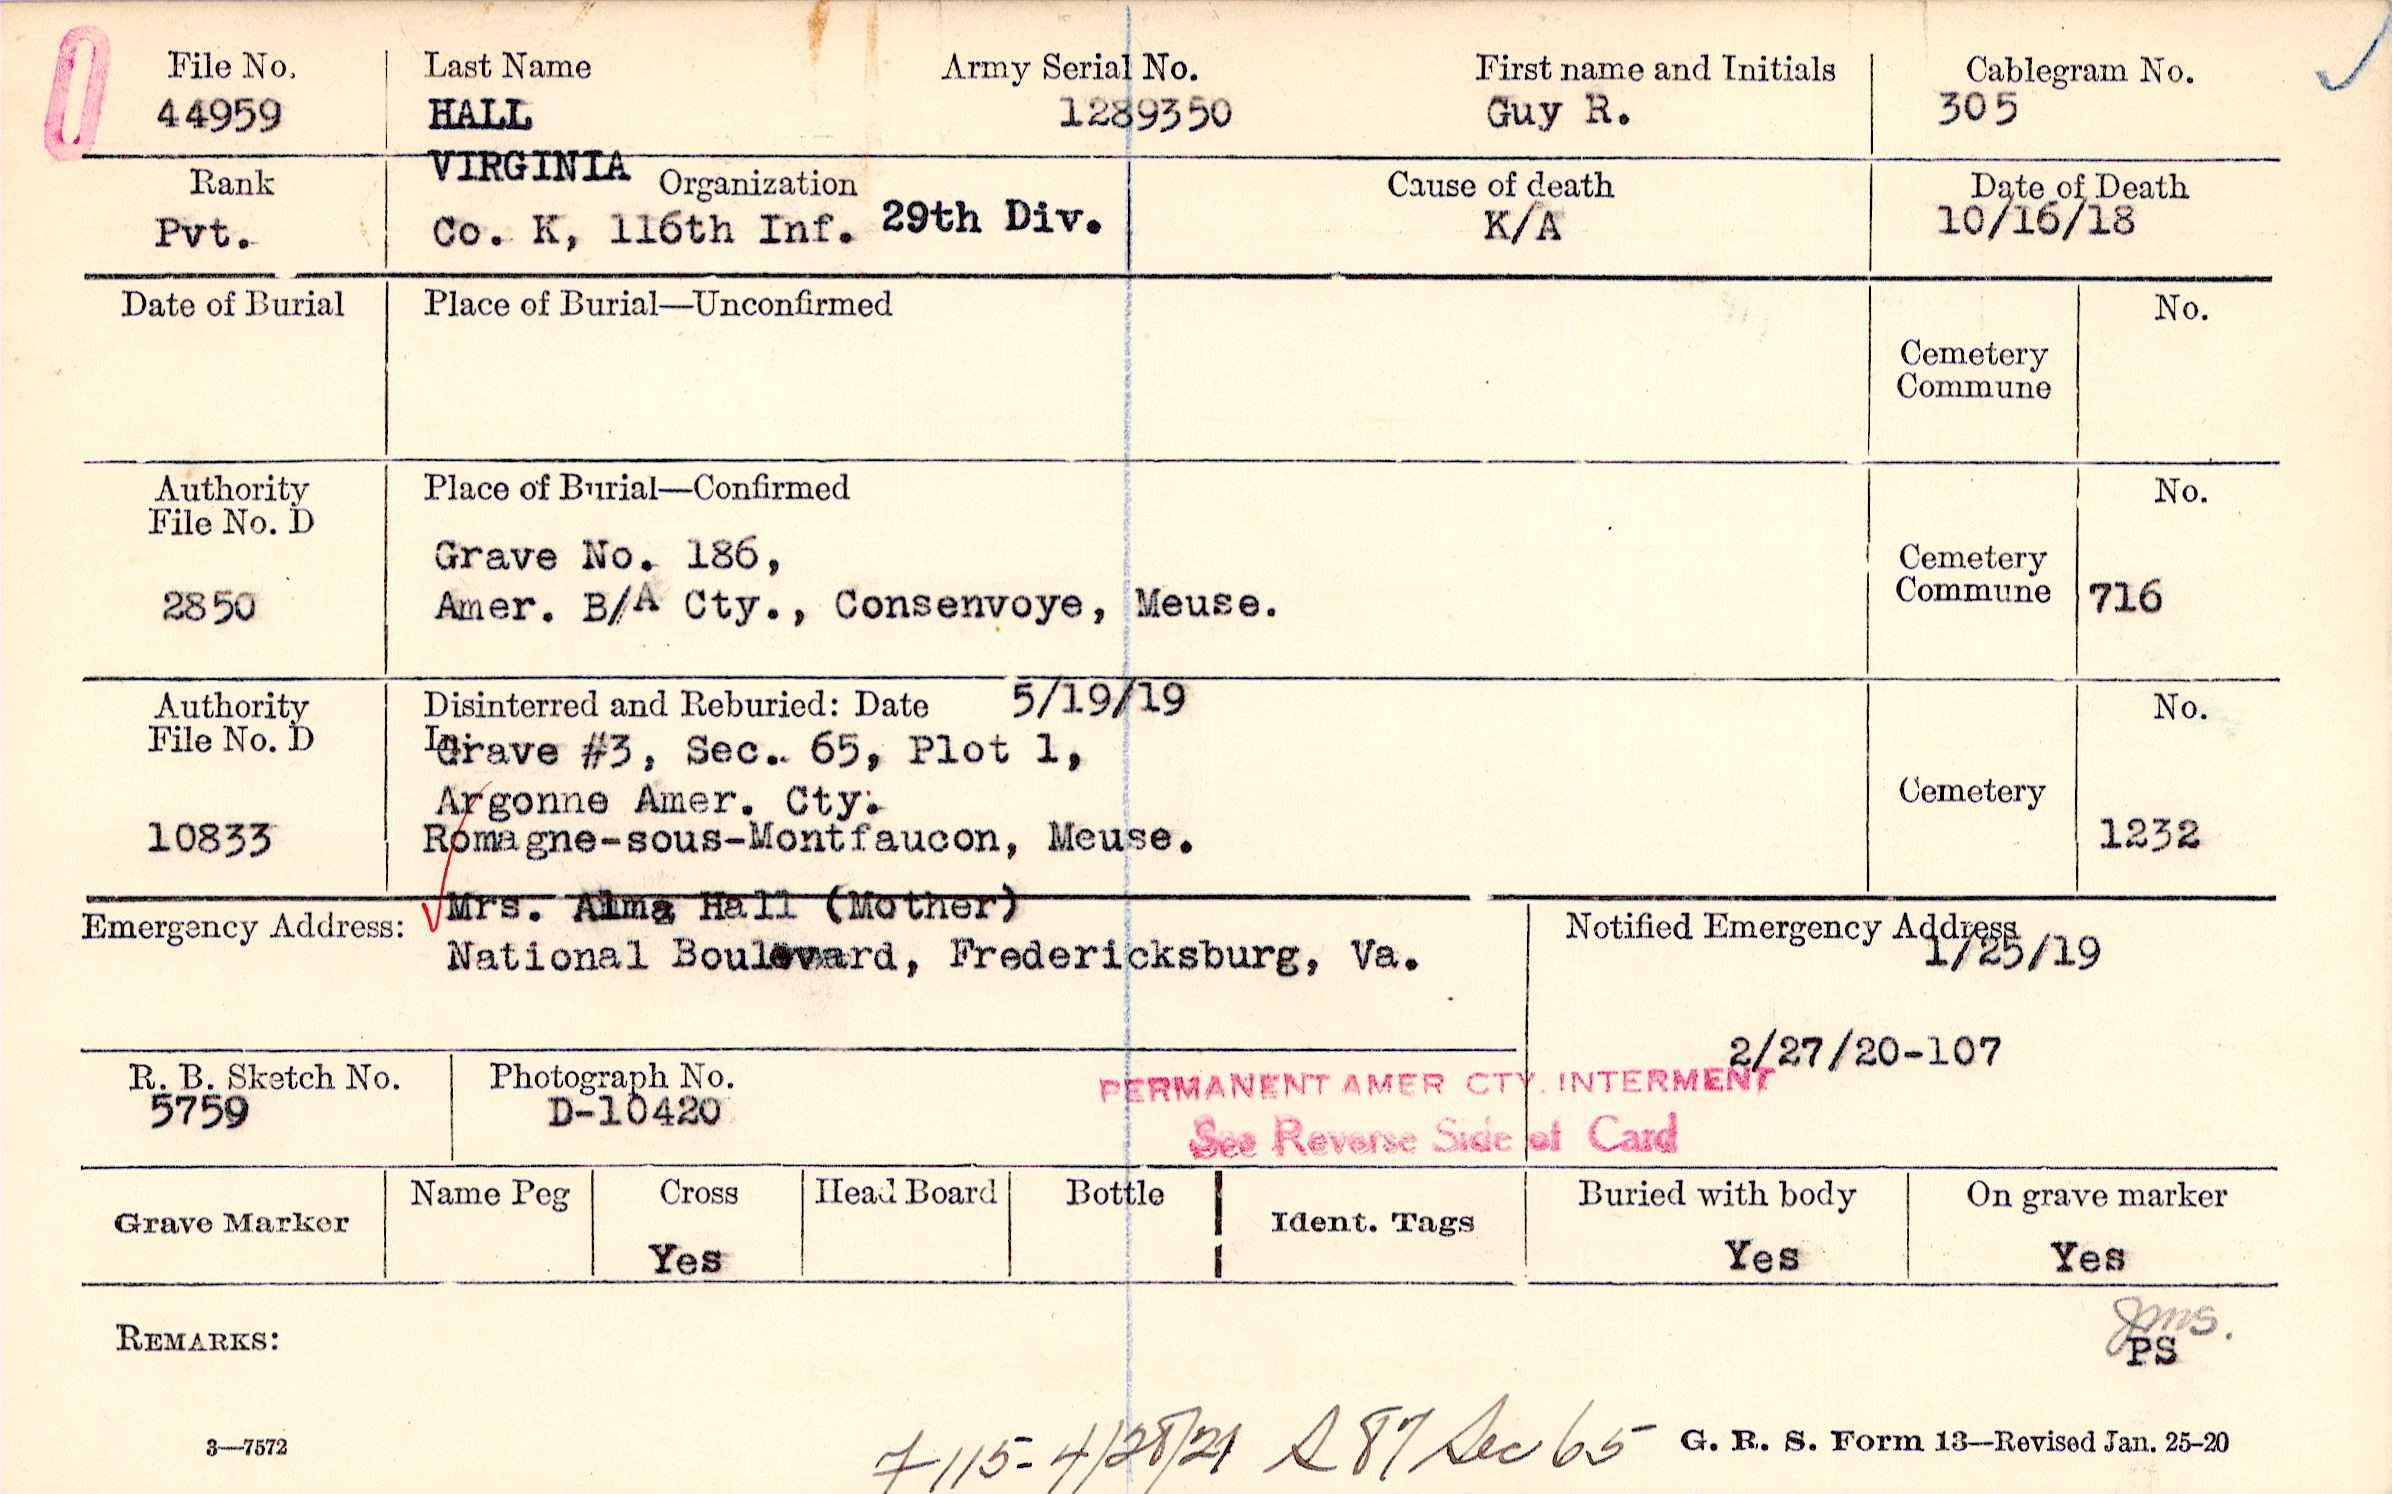 File No. Last Name Army Serial No. First name and Initials Cablegram No.
44959 HALL 1289350 Guy R. 305
VIRGINIA
Rank Organization Cause of death Date of Death
Pvt. Co. K, 116th Inf. 29th Div. K/A 10/16/18
Date of Burial Place of Burial—Unconfirmed No.
Cemetery
Commune
Authority Place of Burial—Confirmed No.
File No. D
Grave No. 186, Cemetery
2850 Amer. B/A Cty., Consenvoye, Meuse. Commune 716
Authority Disinterred and Reburied: Date 5/19/19 No.
File No. D In: Grave #3, Sec. 65, Plot 1,
Argonne Amer. Cty. Cemetery
10833 Romagne-sous-Montfaucon, Meuse. 1232
Mrs. Alma Hall (Mother)
Emergency Address: Notified Emergency Address
National Boulevard, Fredericksburg, Va. 1/25/19
2/27/20-107
R. B. Sketch No. Photograph No.
5759 D-10420
PERMANENT AMER CTY. INTERMENT
See Reverse Side of Card
Name Peg Cross Head Board Bottle Buried with body On grave marker
Grave Marker Ident. Tags
Yes Yes Yes
REMARKS:
PS
115- 4/28/21 87 Sec 65
3—7572 G. R. S. Form 13—Revised Jan. 25-20